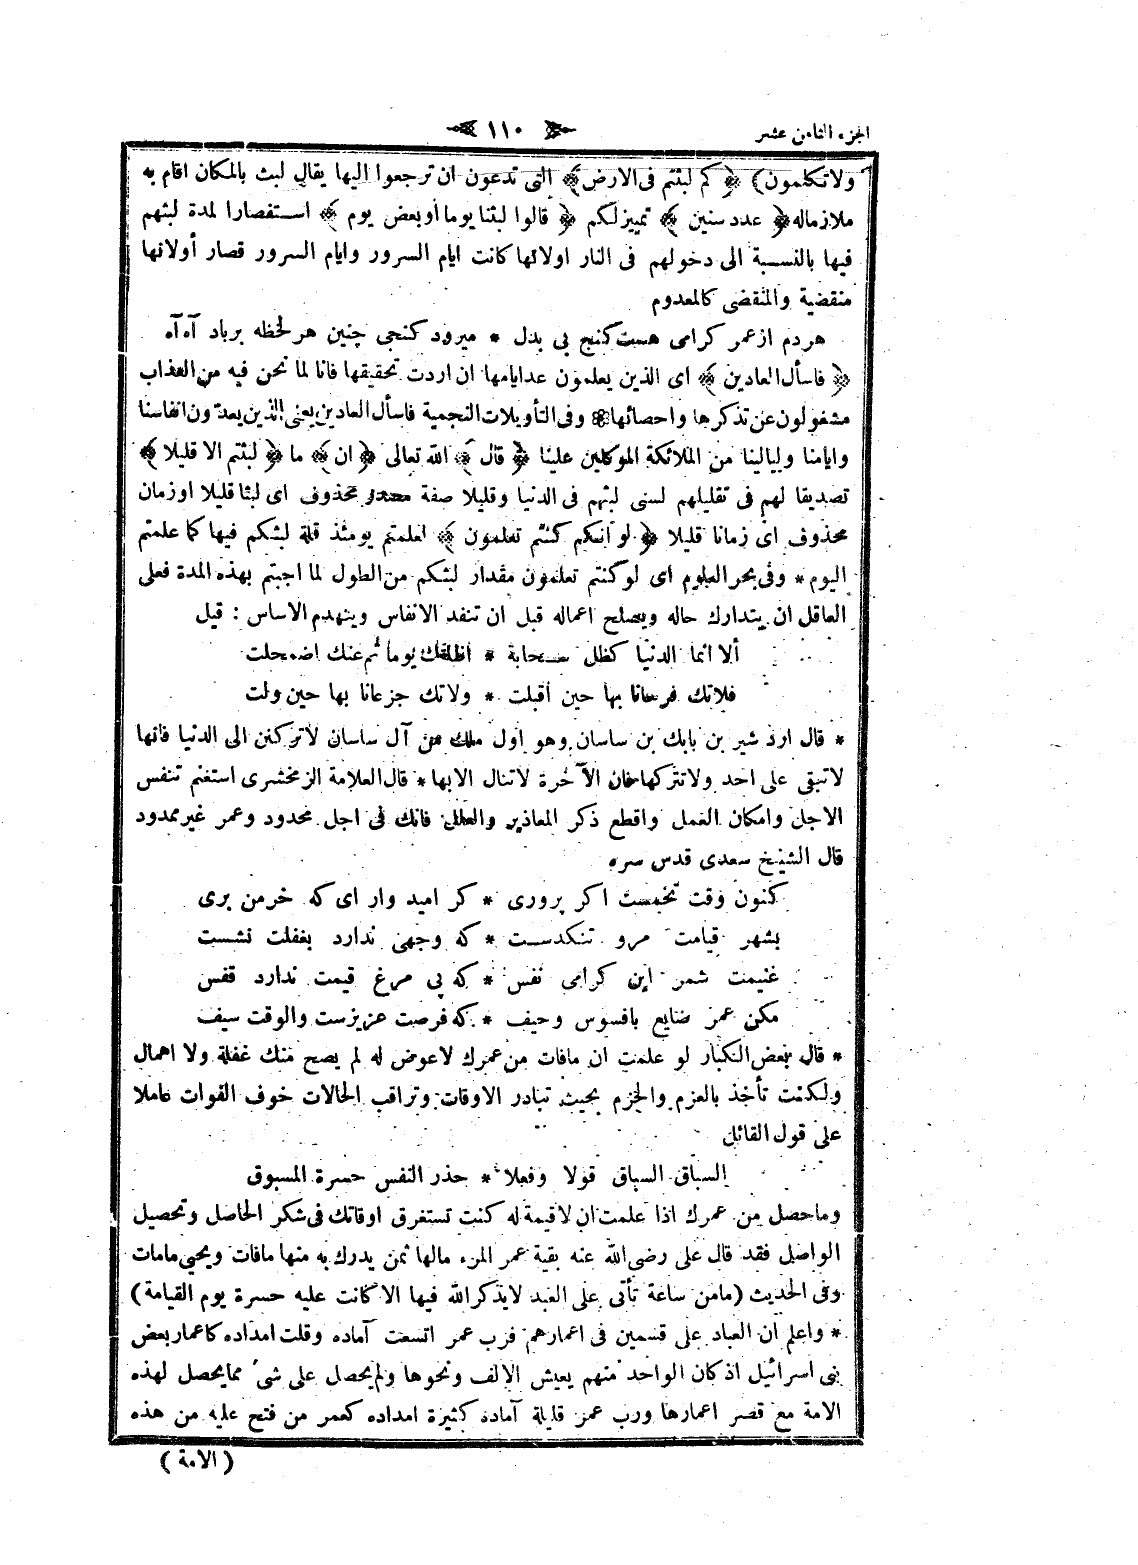 الجزء الثامن عشر
﴿ ١١٠ ﴾
ولا تكلمون) ﴿ كم لبثتم فى الارض﴾ التى تدعون ان ترجعوا اليها يقال لبث بالمكان اقام به
ملازماله ﴿ عدد سنين ﴾ تمييز لكم ﴿ قالوا لبثنا يوما أو بعض يوم ﴾ استقصارا لمدة لبثهم
فيها بالنسبة الى دخولهم فى النار اولانها كانت ايام السرور وايام السرور قصار أولانها
منقضية والمنقضى كالمعدوم
هردم از عمر كرامى هست كنج بى بدل * ميرود كنجى چنين هر لحظه برباد آه آه
﴿ فاسأل العادين ﴾ اى الذين يعلمون عد ايامها ان اردت تحقيقها فانا لما نحن فيه من العذاب
مشغولون عن تذكرها واحصائها * وفى التأويلات النجمية فاسأل العادين يعنى الذين يعدّون انفاسنا
وايامنا وليالينا من الملائكة الموكلين علينا ﴿ قال ﴾ الله تعالى ﴿ ان ﴾ ما ﴿ لبثتم الا قليلا ﴾
تصديقا لهم فى تقليلهم لسنى لبثهم فى الدنيا وقليلا صفة مصدر محذوف اى لبثا قليلا اوزمان
محذوف اى زمانا قليلا ﴿ لو أنكم كنتم تعلمون ﴾ لعلمتم يومئذ قلة لبثكم فيها كما علمتم
اليوم * وفى بحر العلوم اى لو كنتم تعلمون مقدار لبثكم من الطول لما اجبتم بهذه المدة فعلى
العاقل ان يتدارك حاله ويصلح اعماله قبل ان تنفد الانفاس وينهدم الاساس : قيل
ألا انما الدنيا كظل سحابة * اظلتك يوما ثم عنك اضمحلت
فلاتك فرحانا بها حين أقبلت * ولاتك جزعانا بها حين ولت
* قال ارد شير بن بابك بن ساسان وهو اول ملك من آل ساسان لاتركنن الى الدنيا فانها
لاتبقى على احد ولاتتركها فان الآخرة لاتنال الابها * قال العلامة الزمخشرى استغنم تنفس
الاجل وامكان العمل واقطع ذكر المعاذير والعلل فانك فى اجل محدود وعمر غير ممدود
قال الشيخ سعدى قدس سره
كنون وقت تخمست اكر پرورى * كر اميد وار اى كه خرمن برى
بشهر قيامت مرو تنكدست * كه وجهى ندارد بغفلت نشست
غنيمت شمر اين كرامى نفس * كه بى مرغ قيمت ندارد قفس
مكن عمر ضايع بافسوس وحيف * كه فرصت عزيزست والوقت سيف
* قال بعض الكبار لو علمت ان مافات من عمرك لاعوض له لم يصح منك غفلة ولا اهمال
ولكنت تأخذ بالعزم والحزم بحيث تبادر الاوقات وتراقب الحالات خوف الفوات عاملا
على قول القائل
السباق السباق قولا وفعلا * حذر النفس حسرة المسبوق
وماحصل من عمرك اذا علمت ان لاقيمة له كنت تستغرق اوقاتك فى شكر الحاصل وتحصيل
الواصل فقد قال على رضى الله عنه بقية عمر المرء مالها ثمن يدرك به منها مافات ويحيى مامات
وفى الحديث (مامن ساعة تأتى على العبد لايذكر الله فيها الا كانت عليه حسرة يوم القيامة)
* واعلم ان العباد على قسمين فى اعمارهم فرب عمر اتسعت آماده وقلت امداده كاعمار بعض
بنى اسرائيل اذ كان الواحد منهم يعيش الالف ونحوها ولم يحصل على شئ مما يحصل لهذه
الامة مع قصر اعمارها ورب عمر قليلة آماده كثيرة امداده كعمر من فتح عليه من هذه
( الامة )